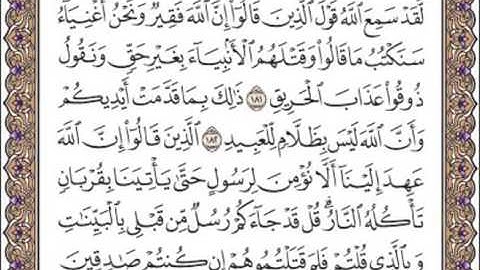 لَّقَدْ سَمِعَ ٱللَّهُ قَوْلَ ٱلَّذِينَ قَالُوٓا۟ إِنَّ ٱللَّهَ فَقِيرٌ وَنَحْنُ أَغْنِيَآءُ
سَنَكْتُبُ مَا قَالُوا۟ وَقَتْلَهُمُ ٱلْأَنۢبِيَآءَ بِغَيْرِ حَقٍّ وَنَقُولُ
ذُوقُوا۟ عَذَابَ ٱلْحَرِيقِ ١٨١ ذَٰلِكَ بِمَا قَدَّمَتْ أَيْدِيكُمْ
وَأَنَّ ٱللَّهَ لَيْسَ بِظَلَّامٍ لِّلْعَبِيدِ ١٨٢ ٱلَّذِينَ قَالُوٓا۟ إِنَّ ٱللَّهَ
عَهِدَ إِلَيْنَآ أَلَّا نُؤْمِنَ لِرَسُولٍ حَتَّىٰ يَأْتِيَنَا بِقُرْبَانٍ
تَأْكُلُهُ ٱلنَّارُ ۗ قُلْ قَدْ جَآءَكُمْ رُسُلٌ مِّن قَبْلِى بِٱلْبَيِّنَـٰتِ
وَبِٱلَّذِى قُلْتُمْ فَلِمَ قَتَلْتُمُوهُمْ إِن كُنتُمْ صَـٰدِقِينَ